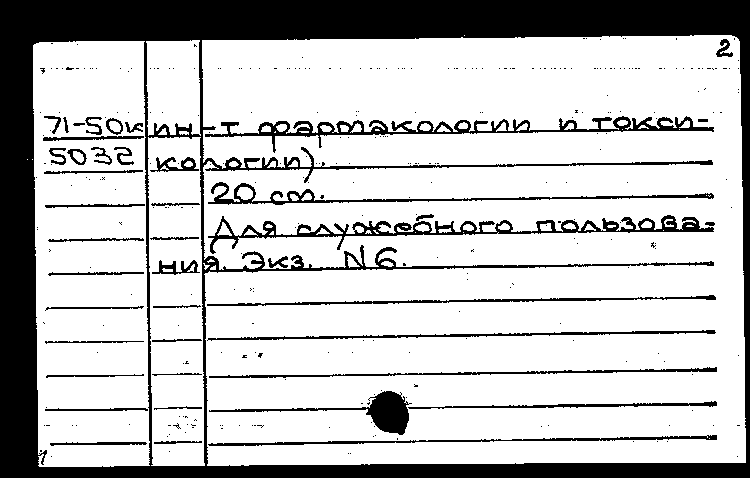 2
71-50к ин-т фармакологии и токси-
5032 кологии).
20 см.
Для служебного пользова-
ния. Экз. N6.